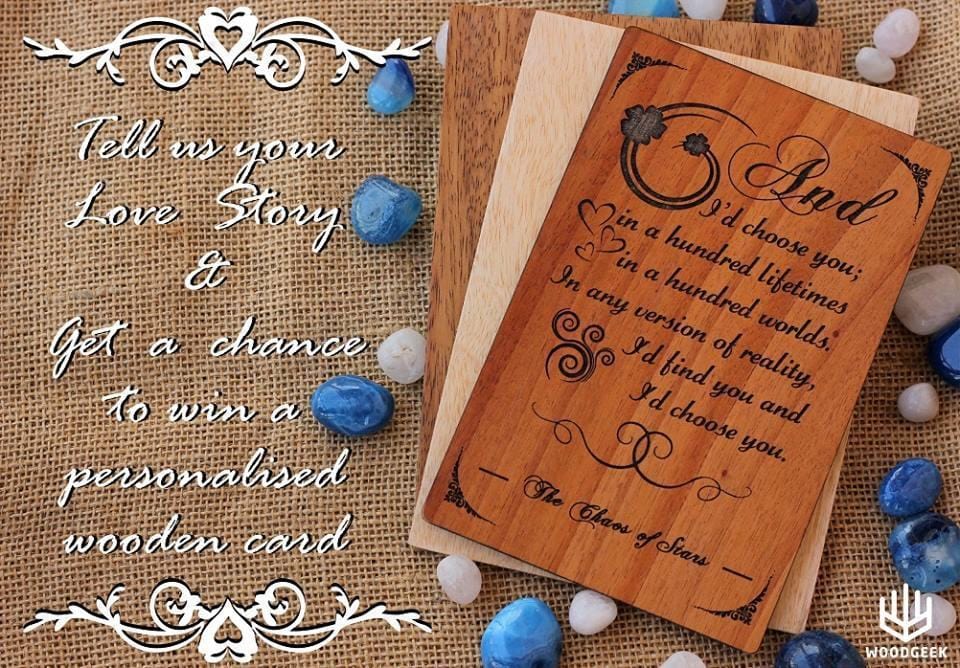 Tell us your
Love Story
&
Get a chance
to win a
personalised
wooden card
And
I'd choose you;
in a hundred lifetimes
in a hundred worlds.
In any version of reality,
I'd find you and
I'd choose you.
— The Chaos of Stars —
WOODGEEK